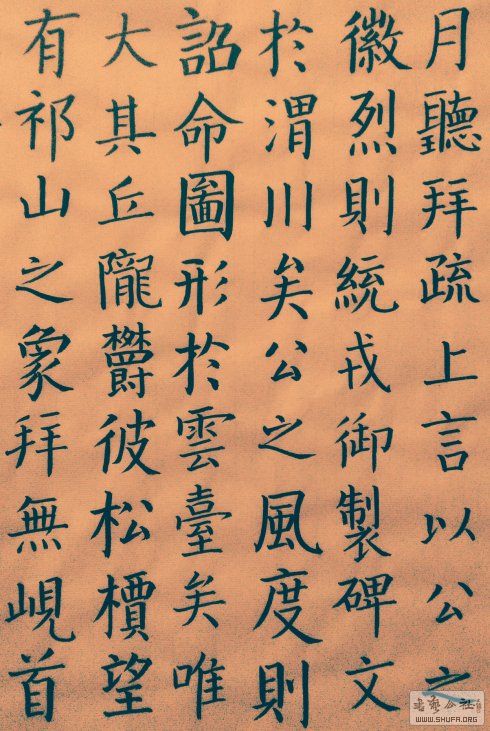 月聽拜疏上言以公之
徽烈則統戎御製碑文
於渭川矣公之風度則
詔命圖形於雲臺矣唯
大其丘隴欝彼松檟望
有祁山之象拜無峴首
WWW.SHUFA.ORG